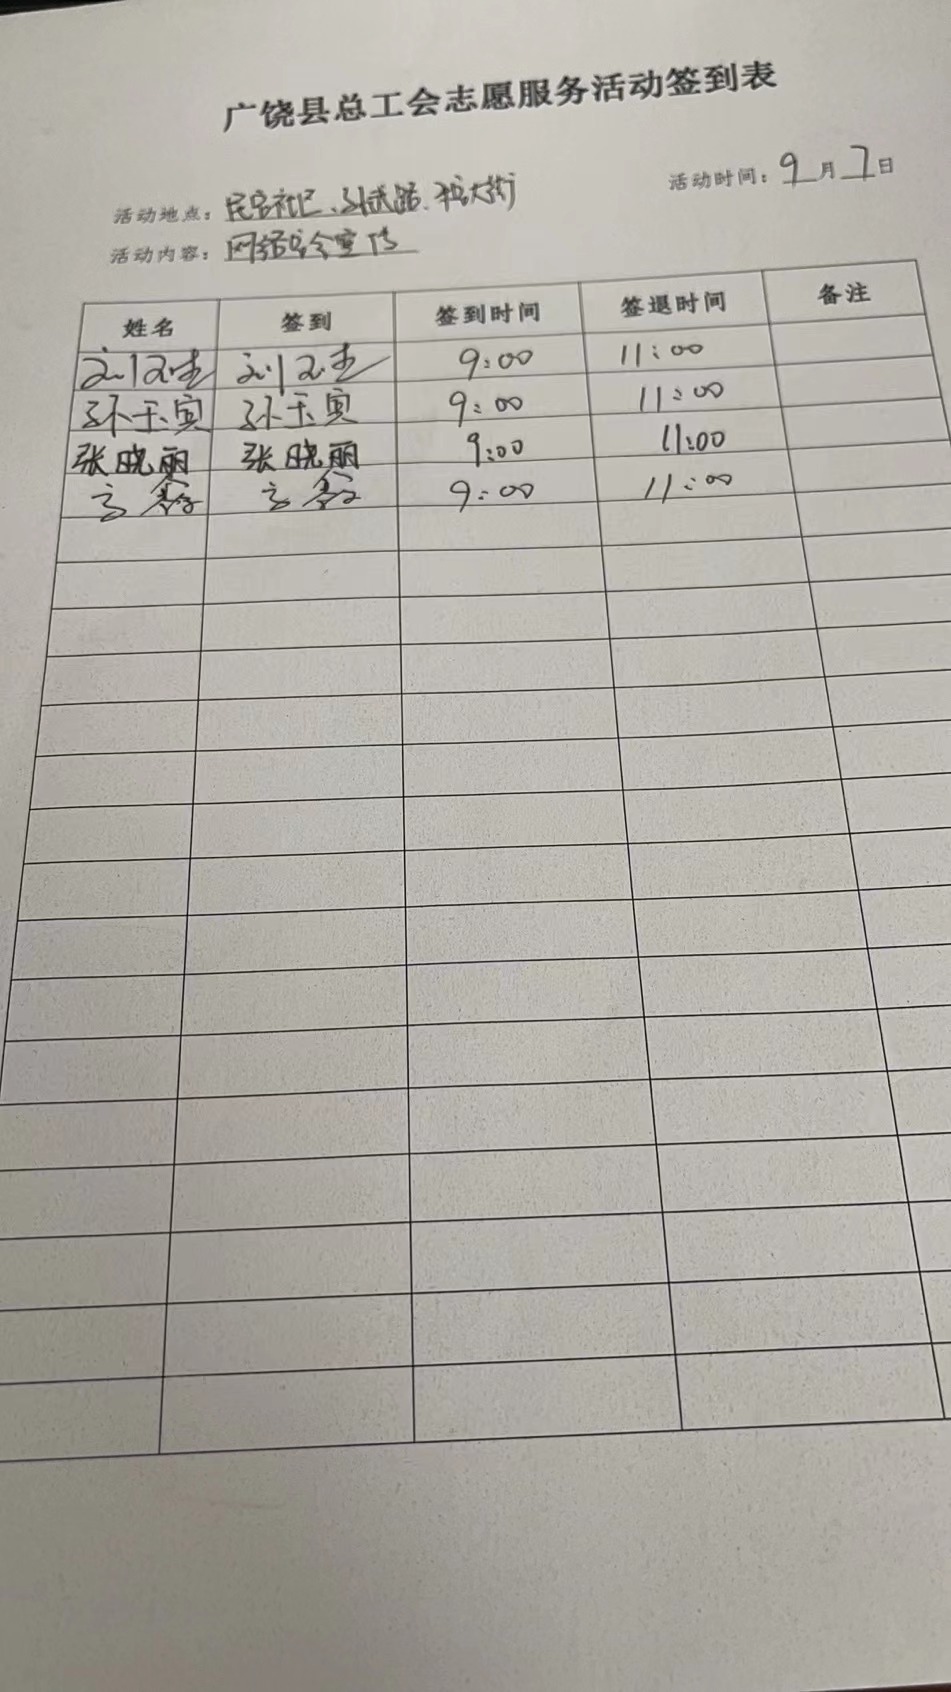 广饶县总工会志愿服务活动签到表
活动时间：9月7日
活动地点：民安社区、孙武路、大街
活动内容：网络安全宣传
姓名 签到 签到时间 签退时间 备注
9:00 11:00
孙玉寅 孙玉寅 9:00 11:00
张晓丽 张晓丽 9:00 11:00
9:00 11:00